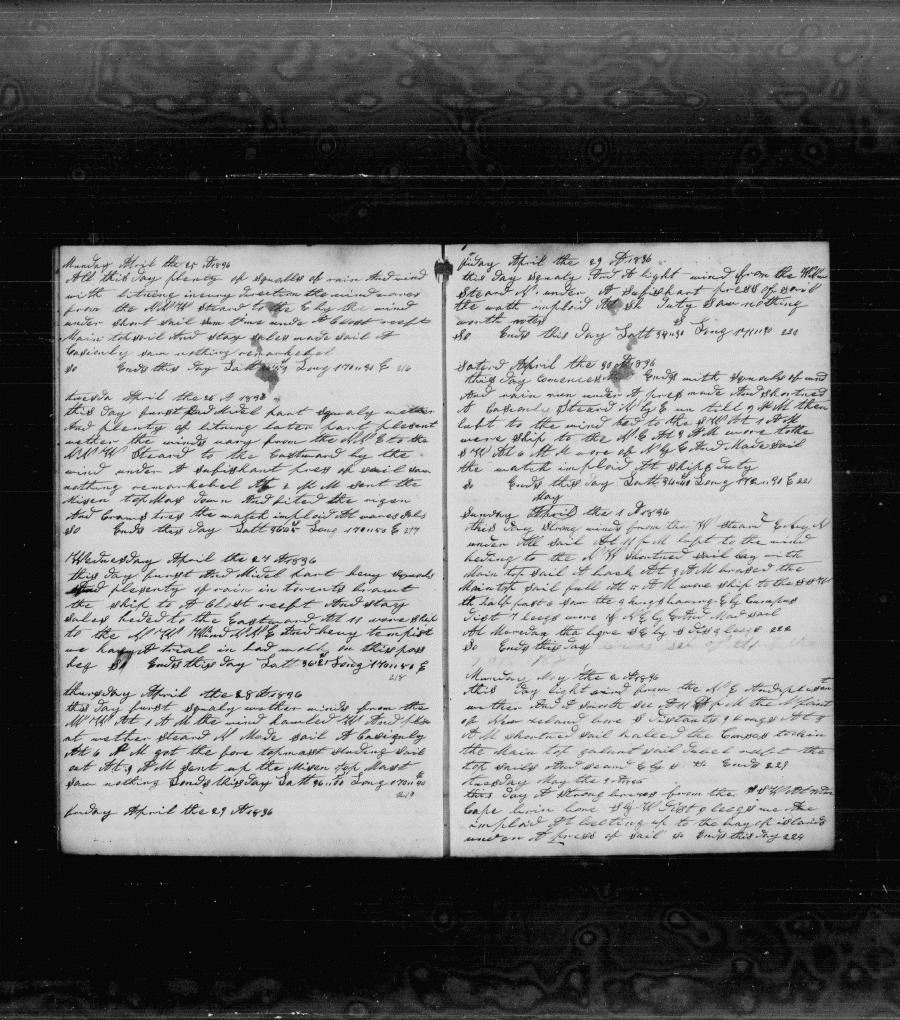 Munday April the 25 A 1836
All this day plenty of squalls of rain And wind
with litning in evry direction the wind wares
from the NNW Steard to the E by the wind
under short sail sum time unde A Clost reeft
Main topsail And stay sales made sail A
Casionly saw nothing remarkebel
So Ends this Day Latt Long 170" E 216
tuesda April the 26 A 1836
this day furst And Midel part squaly wether
And plenty of litning later part plesent
wether the winds vary from the NNE to the
NNW Steard to the Eastward by the
wind under A Sufishant press of sail saw
nothing remarkebel At 2 PM sent the
Misen topMas down And fited the rigen
And Crams tres the watch imploid At wares Jobs
So Ends this Day Latt 36 Long 170 E 217
Wednesday April the 27 A 1836
this day furst And Midel part hevy squals
And plesenty of rain in torents braut
the ship to A Clost reeft And stay
sales heded to the Eastward At 11 wore ship
to the NW Wind NNE And hevy tempest
we hav A trial in bad on this pas
Ends this day Latt 36 Long 170 E
218
thursday April the 28 A 1836
this day furst squaly wether winds from the
NW At 1 A M the wind hauled W And ples
at wether steard N Made sail A Casiguly
At 6 A M got the fore topmast studing sail
out At 3 P M sent up the Misen top Mast
saw nothing So Ends this day Latt 36 Long 170
219
friday April the 29 A 1836
friday April the 29 A 1836
this day squaly And A light wind from the
Steard N under A Sufishant press of sail
the wath imploid At sh Duty saw nothing
worth notes
So Ends this Day Latt 34 Long 171 220
Saterd April the 30 A 1836
this day Comences Ends with squals of wind
And rain run under A pres made And shortned
A Casionly Steard N by E run till 9 P M then
luft to the wind hed to the SW At 1 A M
wore ship to the N E At 3 A M wore to the
S W At 6 A M wore of N by E And Made sail
the watch imploid At ships Duty
So Ends this day Latt 34 Long 172 E 221
May
Sunday April the 1 A 1836
this day strong winds from the W Steard E by N
under All sail At 11 P M luft to the wind
heding to the N W shortned sail lay with
Main top sail A back At 3 A M brased the
Main top sail full At 4 A M wore ship to the SSW
At half past 6 saw the 3 kings baring E by Compas
Dist 7 leegs wore of N E by E And Mad sail
At Mereday tha bore S E by S Dis 9 leegs 222
So Ends this day
Munday May the 2 A 1836
this day light wind from the N E And plesent
wether And A smooth see At 11 P M the N point
of New zeland bore S Distants 9 longs At 3
A M shortned sail haleed the Corses tooken
the Main top galant sail Dubel reeft the
top sails And steard E by S So Ends 223
tuesday May the 3 A 1836
this day A strong breses from the SSW
Cape bore S by W Dist 9 leegs we Are
imploid At beeting up to the bay of islands
under A press of sail So Ends this day 224